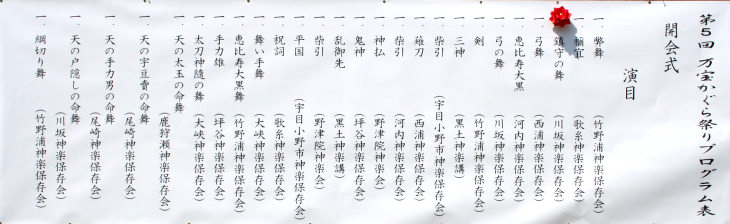 第5回 万宝かぐら祭りプログラム表
開会式
演目
一 弊舞 （竹野浦神楽保存会）
一 禰宜 （歌糸神楽保存会）
一 鎮守の舞 （川坂神楽保存会）
一 弓舞 （西浦神楽保存会）
一 恵比寿大黒 （河内神楽保存会）
一 弓の舞 （川坂神楽保存会）
一 剣 （竹野浦神楽保存会）
一 三神 （黒土神楽講）
一 柴引 （宇目小野市神楽保存会）
一 薙刀 （西浦神楽保存会）
一 柴引 （河内神楽保存会）
一 神払 （野津院神楽会）
一 鬼神 （坪谷神楽保存会）
一 乱御先 （黒土神楽講）
一 柴引 （野津院神楽会）
一 平国 （宇目小野市神楽保存会）
一 祝詞 （歌糸神楽保存会）
一 舞い手舞 （大峡神楽保存会）
一 恵比寿大黒舞 （竹野浦神楽保存会）
一 手力雄 （坪谷神楽保存会）
一 太刀神随の舞 （大峡神楽保存会）
一 天の太玉の命舞 （鹿狩瀬神楽保存会）
一 天の宇豆賣の命舞 （尾崎神楽保存会）
一 天の手力男の命舞 （尾崎神楽保存会）
一 天の戸隠しの命舞 （川坂神楽保存会）
一 綱切り舞 （竹野浦神楽保存会）